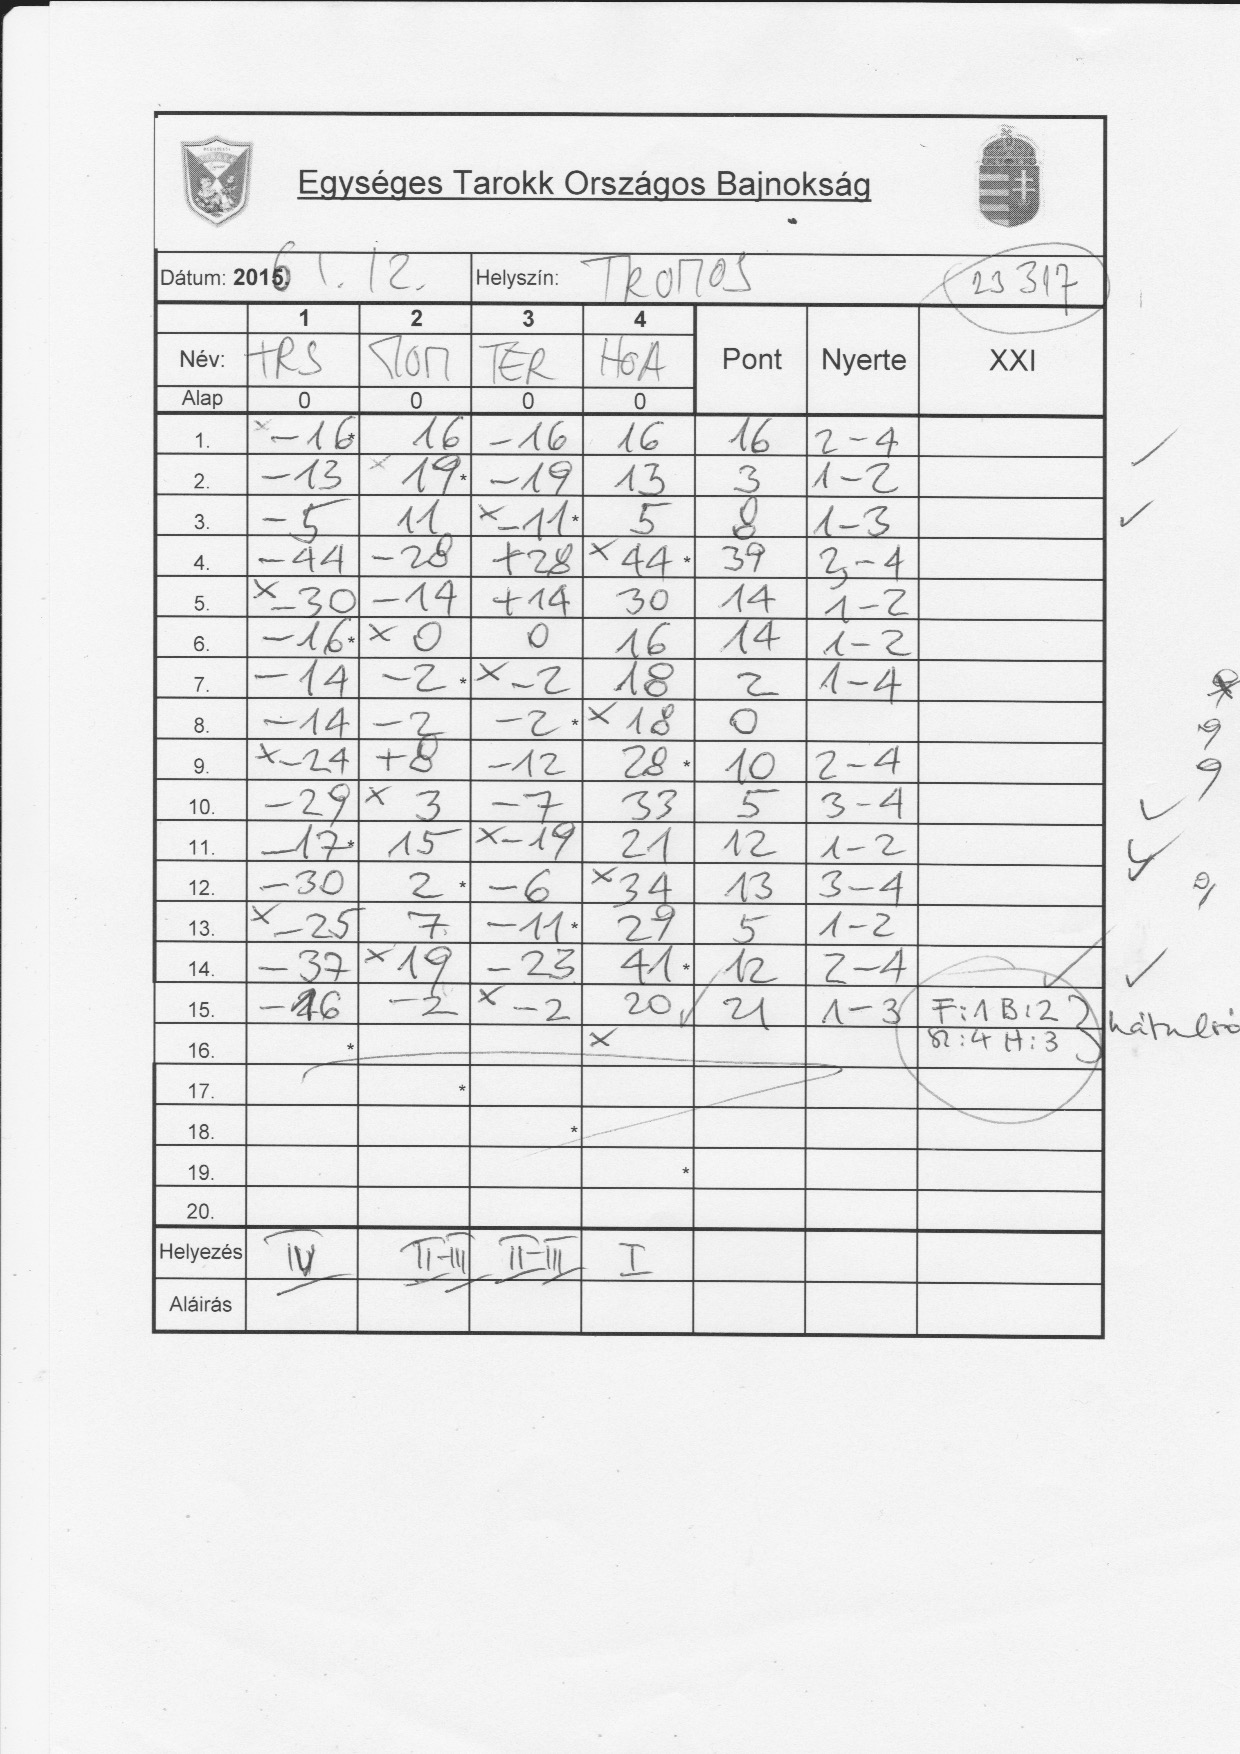 Egységes Tarokk Országos Bajnokság
Dátum: 2016. 1. 12. Helyszín: TROMOS 23 317
1 2 3 4
Név: TRS MOM TER HOA Pont Nyerte XXI
Alap 0 0 0 0
1. x -16* 16 -16 16 16 2-4
2. -13 x 19* -19 13 3 1-2
3. -5 11 x -11* 5 8 1-3
4. -44 -28 +28 x 44* 39 2,-4
5. x -30 -14 +14 30 14 1-2
6. -16* x 0 0 16 14 1-2
7. -14 -2* x -2 18 2 1-4
8. -14 -2 -2* x 18 0
9. x -24 +8 -12 28* 10 2-4
10. -29 x 3 -7 33 5 3-4
11. -17* 15 x -19 21 12 1-2
12. -30 2* -6 x 34 13 3-4
13. x -25 7 -11* 29 5 1-2
14. -37 x 19 -23 41* 12 2-4
15. -16 -2 x -2 20 21 1-3 F:1 B:2
16. * x R:4 H:3 hátulró
17. *
18. *
19. *
20.
Helyezés IV II-III II-III I
Aláirás